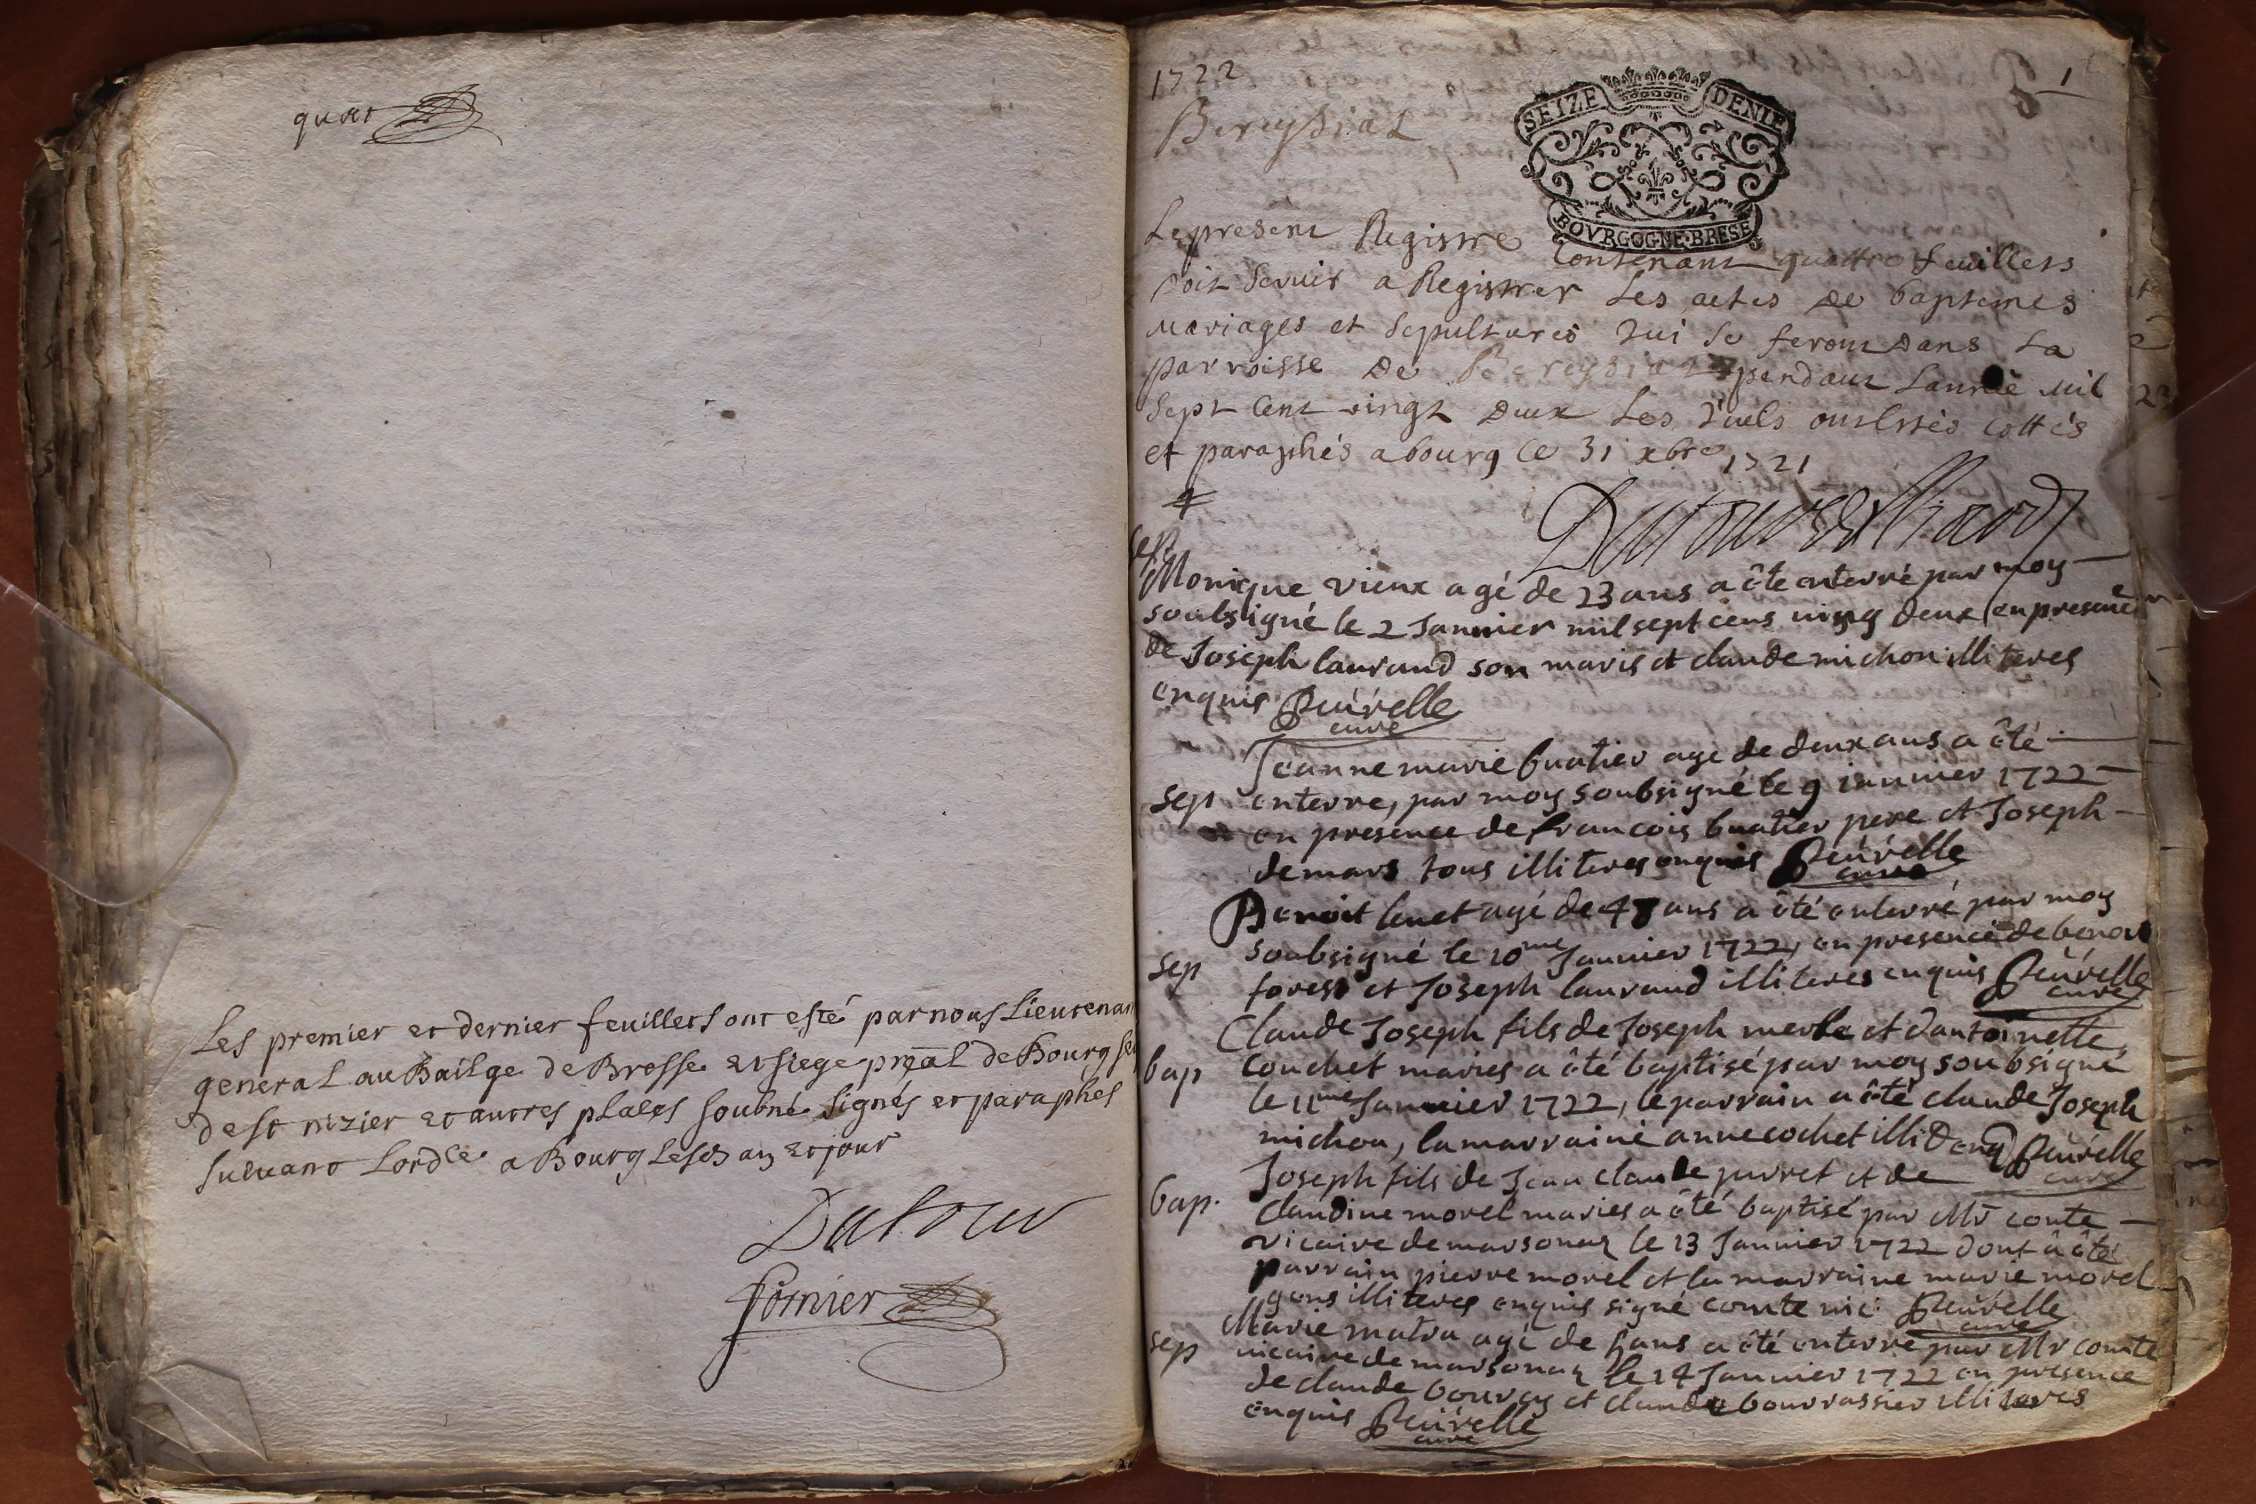 quat
Les premier et dernier feuillets ont esté par nous Lieutenan
general au Bailge de Bresse et siege pral de Bourg
de st nizier et autres places soubné signés et paraphes
suivant Lordce a Bourg Lesd an et jour
Dutour
fornier
1722
Bereysiat
1
SEIZE DENIE
BOVRGOGNE·BRESE
Le present Registre Contenant quattre feuillets
doit servir a Registrer Les actes de baptemes
mariages et sepultures qui se feront dans La
parroisse de Bereysiat pendant Lannée mil
sept Cent vingt deux Les quels ont estés cottés
et paraphés a bourg Ce 31 xbre 1721
sep
Monique vieux agé de 23 ans a ôte enterré par moy
soubsigné le 2 Jannier mil sept cens ving deux en presence
de Joseph laurand son maris et claude michon illiteres
enquis Beúvelle
curé
Jeanne marie buatier age de deux ans a ôté
sep enterre, par moy soubsigné le 9 iannier 1722
en presence de francois buatier pere et Joseph
demars tous illiteres enquis Beúvelle
curé
Benoit agé de 48 ans a ôté enterré par moy
soubsigné le 10me Jannier 1722, en presence de benoi
sep forest et Joseph laurand illiteres enquis Beúvelle
curé
Claude Joseph fils de Joseph merle et dantoinette
bap couchet maries a ôté baptisé par moy soubsigné
le 11me Jannier 1722, le parrain a ôté claude Joseph
michon, la marraine anne cochet illit enq Beúvelle
curé
Joseph fils de Jean claude purret et de
bap. claudine morel maries a ôté baptisé par Mr conte
vicaire de marsonaz le 13 Jannier 1722 dont â ôté
parrain pierre morel et la marraine marie morel
gens illiteres enquis signé comte vic Beúvelle
curé
Marie agé de ans a ôté enterre par Mr comte
sep vicaire de marsonaz le 14 Jannier 1722 en presence
de claude et claude bourrassier illiteres
enquis Beúvelle
curé